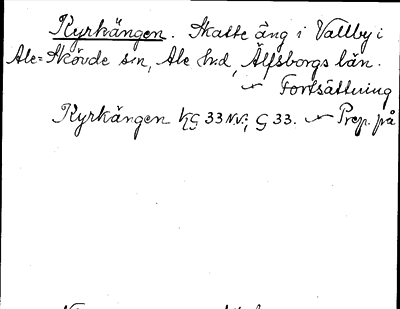 Kyrkängen. Skatte äng i Vallby i
Ale=Skövde sn, Ale hd, Älfsborgs län.
Fortsättning
Kyrkängen KG 33 N.V.; G 33. Prep. på